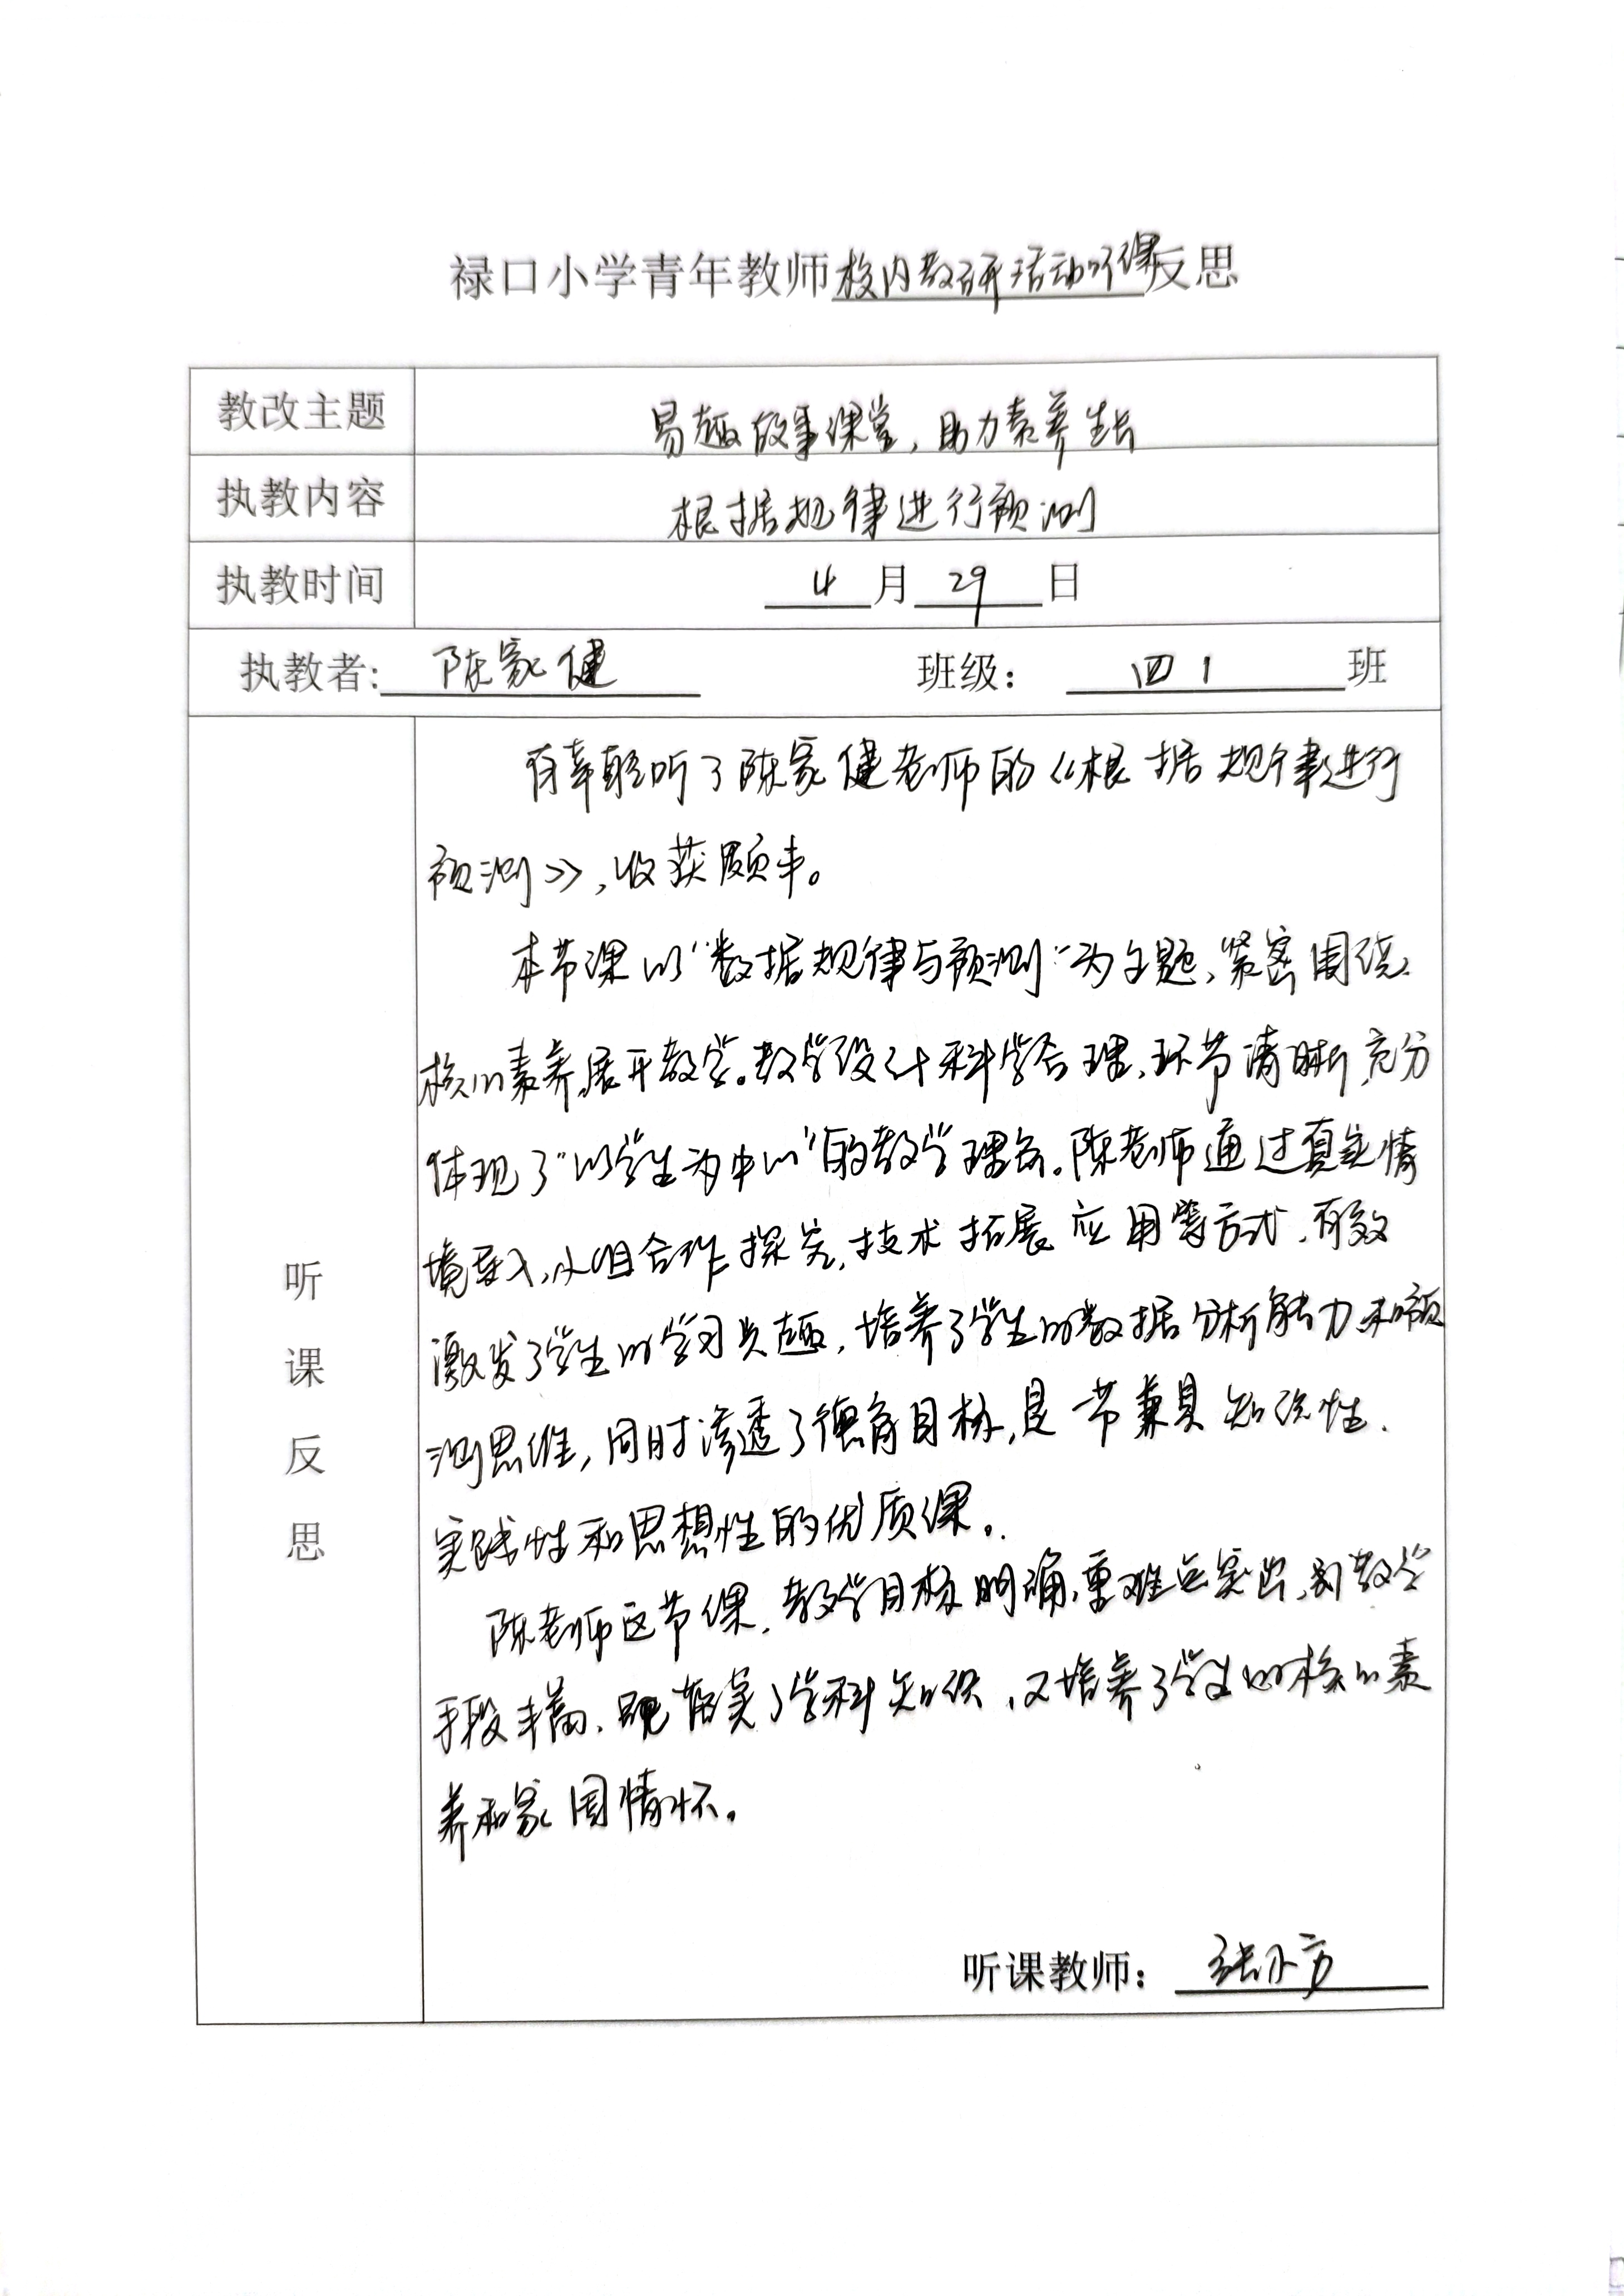 禄口小学青年教师校内教研活动听课反思
教改主题 易趣故事课堂，助力素养生长
执教内容 根据规律进行预测
执教时间 4 月 29 日
执教者: 陈家健 班级： 四1 班
听课反思
有幸聆听了陈家健老师的《根据规律进行
预测》，收获颇丰。
本节课以“数据规律与预测”为主题，紧密围绕
核心素养展开教学。教学设计科学合理，环节清晰，充分
体现了“以学生为中心”的教学理念。陈老师通过真实情
境导入，小组合作探究，技术拓展应用等方式，有效
激发了学生的学习兴趣，培养了学生的数据分析能力和预
测思维，同时渗透了德育目标，是一节兼具知识性、
实践性和思想性的优质课。
陈老师这节课，教学目标明确，重难点突出，教学
手段丰富，既落实了学科知识，又培养了学生的核心素
养和家国情怀。
听课教师： 张小方